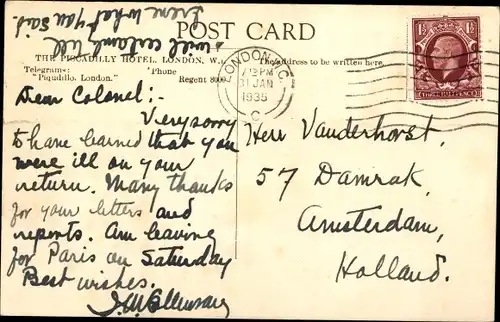 I will certainly tell
Irene what you said.
POST CARD
THE PICCADILLY HOTEL, LONDON, W.1
The address to be written here.
Telegrams:
'Phone
"Piqudillo, London."
Regent 8000
LONDON. W.C.
7.15 PM
31 JAN
1935
C
1½ 1½
THREE HALFPENCE
Dear Colonel:-
Very sorry
to have learned that you
were ill on your
return. Many thanks
for your letters and
reports. Am leaving
for Paris on Saturday
Best wishes.
Herr Vanderhorst,
57 Damrak,
Amsterdam,
Holland.